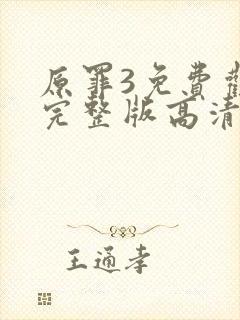 原罪3免費
完整版高清
王通孝